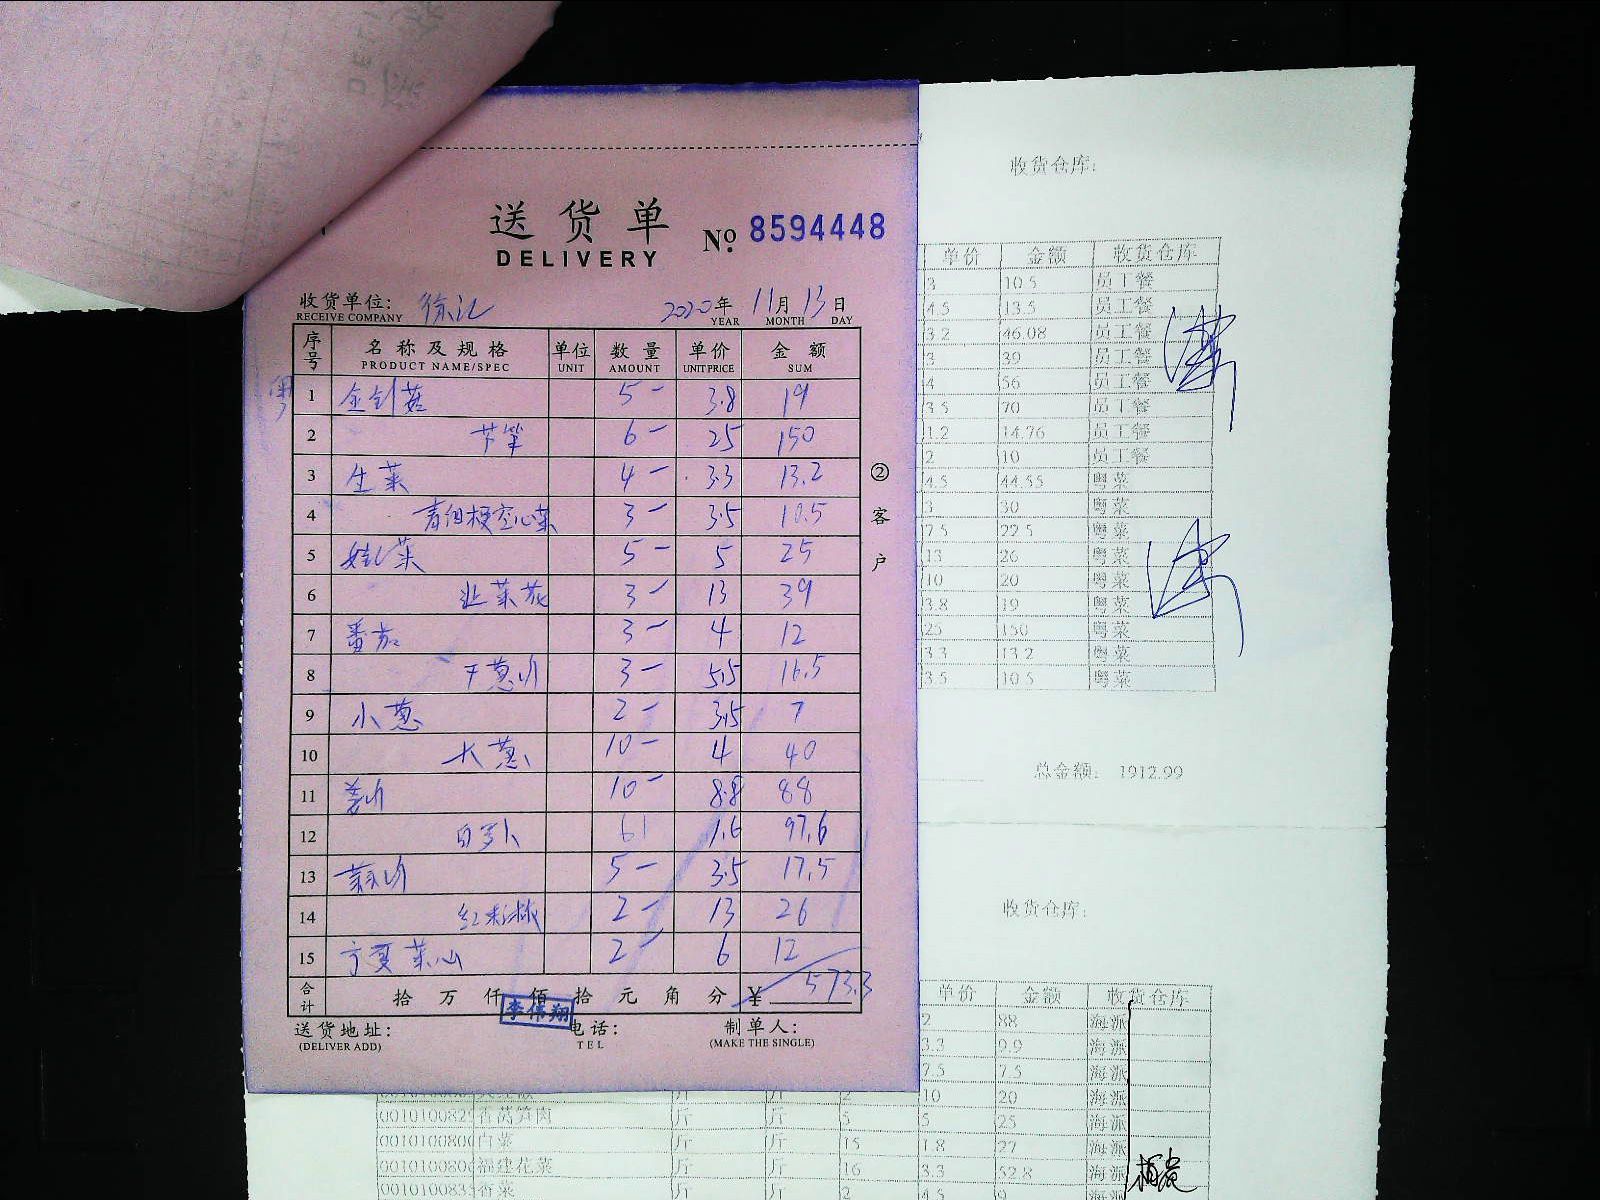 送货单 No. 8594448
DELIVERY
收货单位: 徐汇 2020年 11月 13日
RECEIVE COMPANY YEAR MONTH DAY
序号 名称及规格 单位 数量 单价 金额
PRODUCT NAME/SPEC UNIT AMOUNT UNIT PRICE SUM
1 金针菇 5- 3.8 19
2 芦笋 6- 25 150
3 生菜 4- 3.3 13.2
4 青梗空心菜 3- 3.5 10.5
5 娃娃菜 5- 5 25
6 韭菜花 3- 13 39
7 番茄 3- 4 12
8 干葱 3- 5.5 16.5
9 小葱 2- 3.5 7
10 大葱 10- 4 40
11 姜 10- 8.8 88
12 白罗卜 61 1.6 97.6
13 5- 3.5 17.5
14 红 2- 13 26
15 宁夏菜心 2- 6 12
合计 拾 万 仟 佰 拾 元 角 分 ¥ 573.3
李伟翔
送货地址: 电话: 制单人:
(DELIVER ADD) TEL (MAKE THE SINGLE)
②客户
收货仓库:
单价 金额 收货仓库
3 10.5 员工餐
4.5 13.5 员工餐
3.2 46.08 员工餐
3 39 员工餐
4 56 员工餐
3.5 70 员工餐
1.2 14.76 员工餐
2 10 员工餐
4.5 44.55 粤菜
3 30 粤菜
7.5 22.5 粤菜
13 26 粤菜
10 20 粤菜
3.8 19 粤菜
25 150 粤菜
3.3 13.2 粤菜
3.5 10.5 粤菜
总金额: 1912.99
收货仓库:
单价 金额 收货仓库
2 88 海派
3.3 9.9 海派
7.5 7.5 海派
10 20 海派
001010082 香莴笋肉 斤 斤 5 5 25 海派
001010080 白菜 斤 斤 15 1.8 27 海派
001010080 福建花菜 斤 斤 16 3.3 52.8 海派
001010083 香菜 斤 斤 2 4.5 9 海派